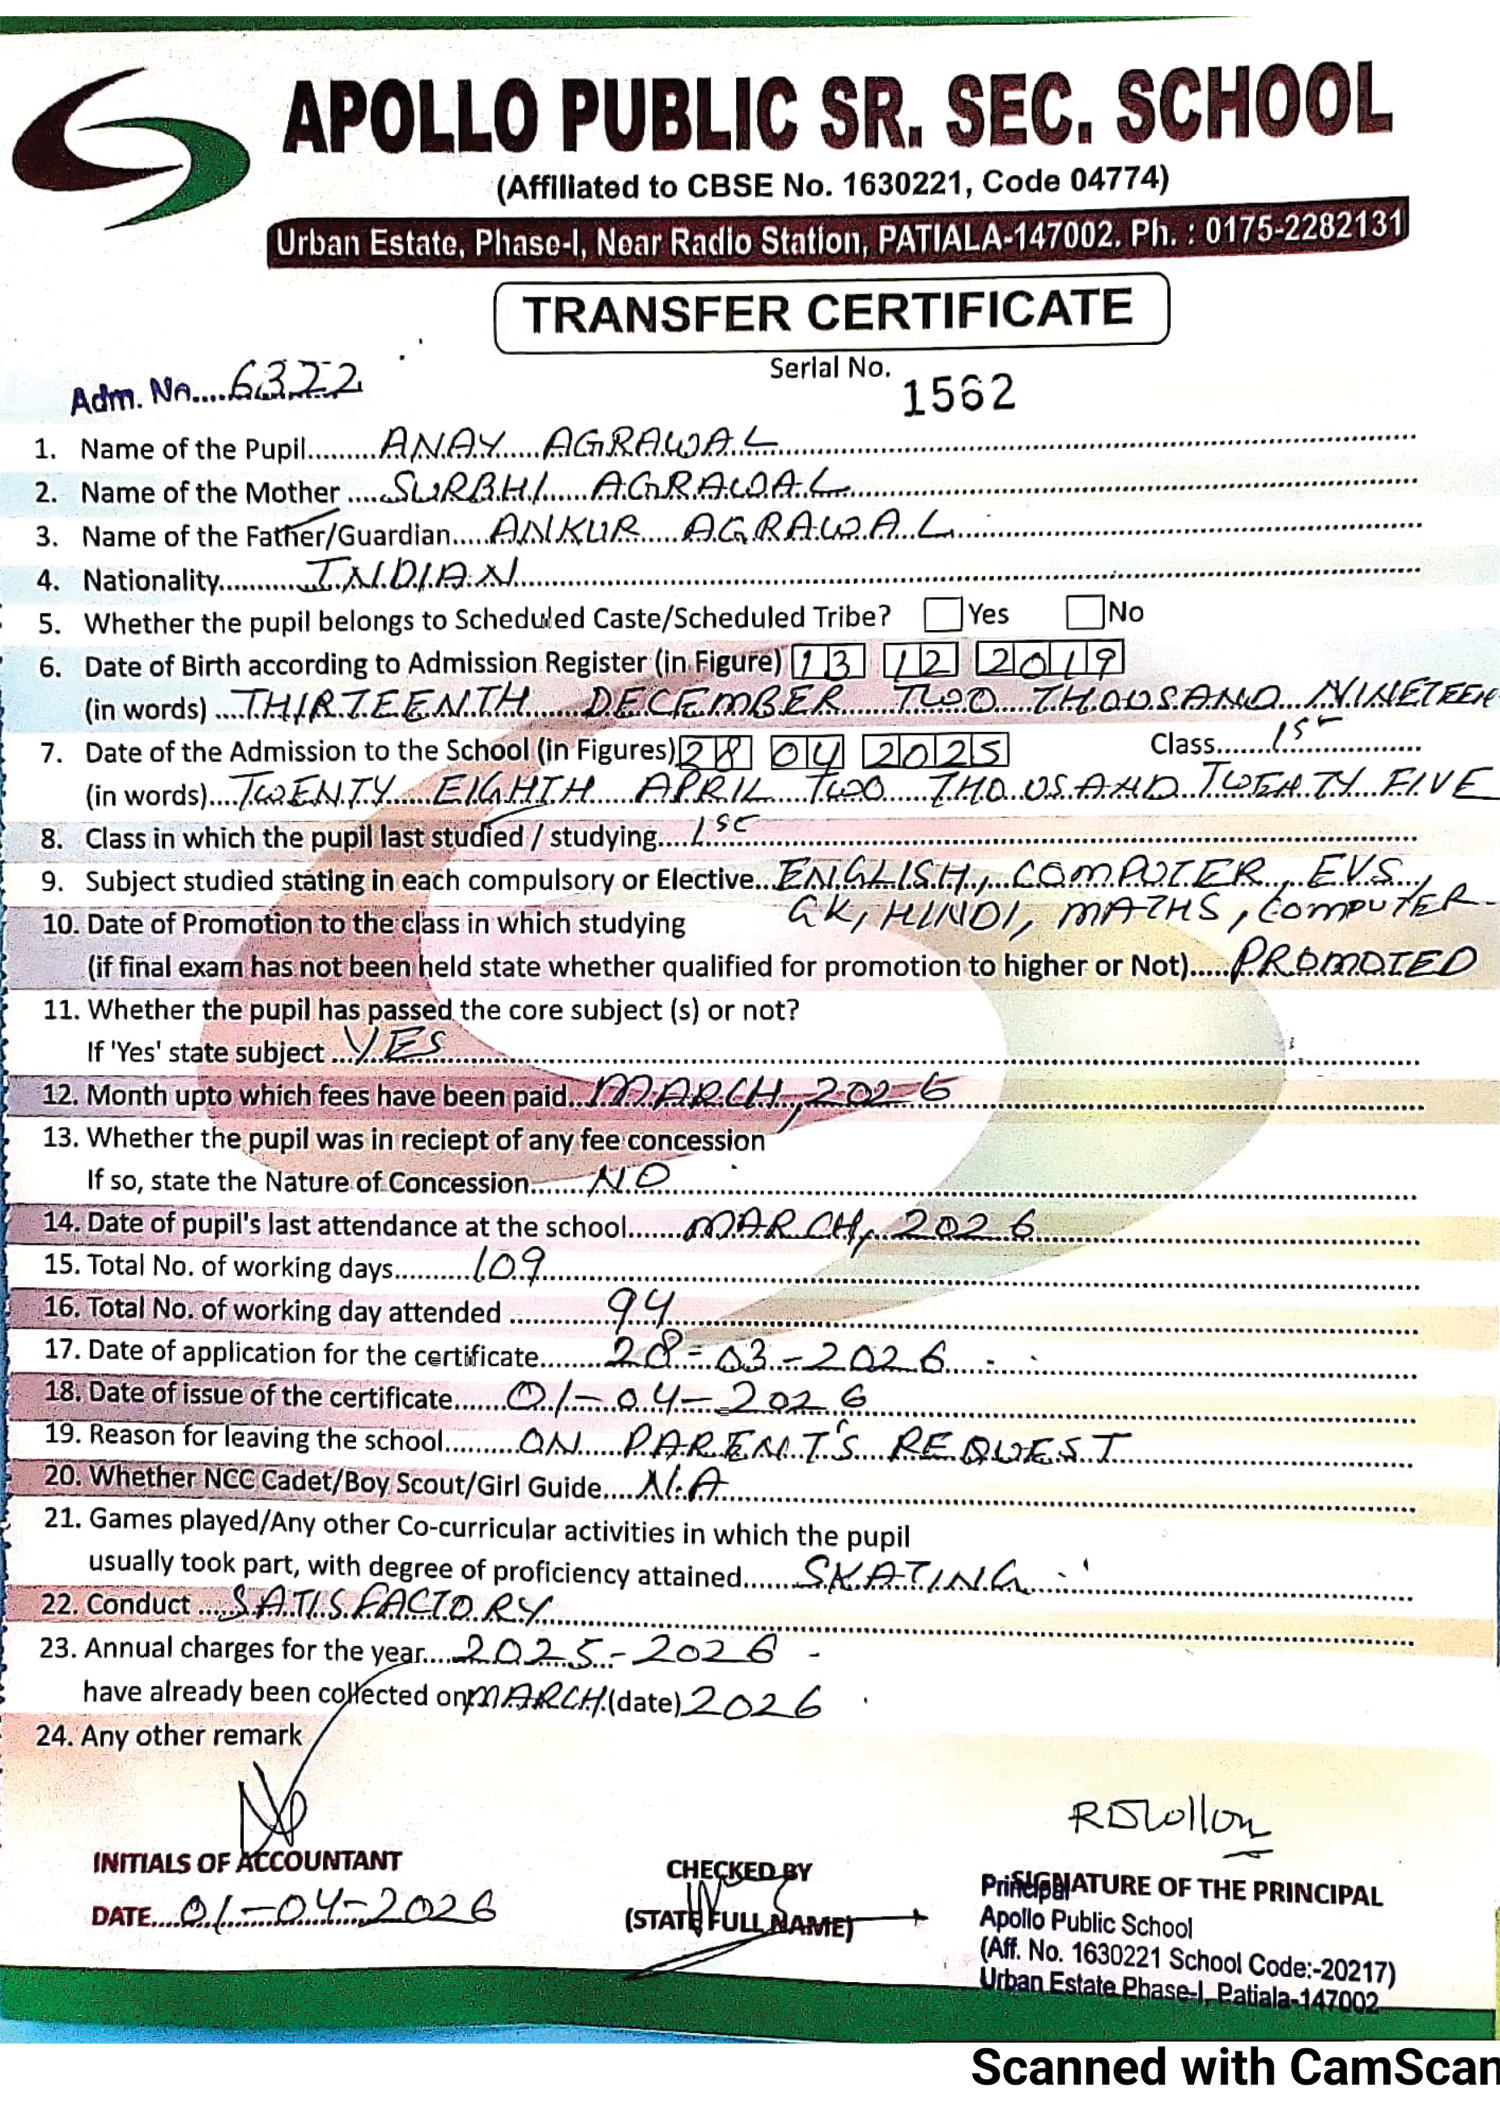 APOLLO PUBLIC SR. SEC. SCHOOL
(Affiliated to CBSE No. 1630221, Code 04774)
Urban Estate, Phase-I, Near Radio Station, PATIALA-147002. Ph. : 0175-2282131
TRANSFER CERTIFICATE
Serial No. 1562
Adm. No.....6322
1. Name of the Pupil.........ANAY AGRAWAL
2. Name of the Mother ....SURBHI AGRAWAL
3. Name of the Father/Guardian.....ANKUR AGRAWAL
4. Nationality.........INDIAN
5. Whether the pupil belongs to Scheduled Caste/Scheduled Tribe? Yes No
6. Date of Birth according to Admission Register (in Figure) 13 12 2019
(in words) ....THIRTEENTH DECEMBER TWO THOUSAND NINETEEN
7. Date of the Admission to the School (in Figures) 28 04 2025 Class.......1st
(in words)....TWENTY EIGHTH APRIL TWO THOUSAND TWENTY FIVE
8. Class in which the pupil last studied / studying....1st
9. Subject studied stating in each compulsory or Elective..ENGLISH, COMPUTER, EVS,
GK, HINDI, MATHS, COMPUTER-
10. Date of Promotion to the class in which studying
(if final exam has not been held state whether qualified for promotion to higher or Not).....PROMOTED
11. Whether the pupil has passed the core subject (s) or not?
If 'Yes' state subject ...YES
12. Month upto which fees have been paid..MARCH, 2026
13. Whether the pupil was in reciept of any fee concession
If so, state the Nature of Concession.......NO
14. Date of pupil's last attendance at the school.......MARCH, 2026
15. Total No. of working days..........109
16. Total No. of working day attended ..........94
17. Date of application for the certificate.........28-03-2026
18. Date of issue of the certificate.......01-04-2026
19. Reason for leaving the school.........ON PARENT'S REQUEST
20. Whether NCC Cadet/Boy Scout/Girl Guide....N.A
21. Games played/Any other Co-curricular activities in which the pupil
usually took part, with degree of proficiency attained......SKATING
22. Conduct .....SATISFACTORY
23. Annual charges for the year....2025-2026
have already been collected on MARCH (date) 2026
24. Any other remark
INITIALS OF ACCOUNTANT
DATE....01-04-2026
CHECKED BY
(STATE FULL NAME)
SIGNATURE OF THE PRINCIPAL
Principal
Apollo Public School
(Aff. No. 1630221 School Code:-20217)
Urban Estate Phase-I, Patiala-147002
Scanned with CamScan